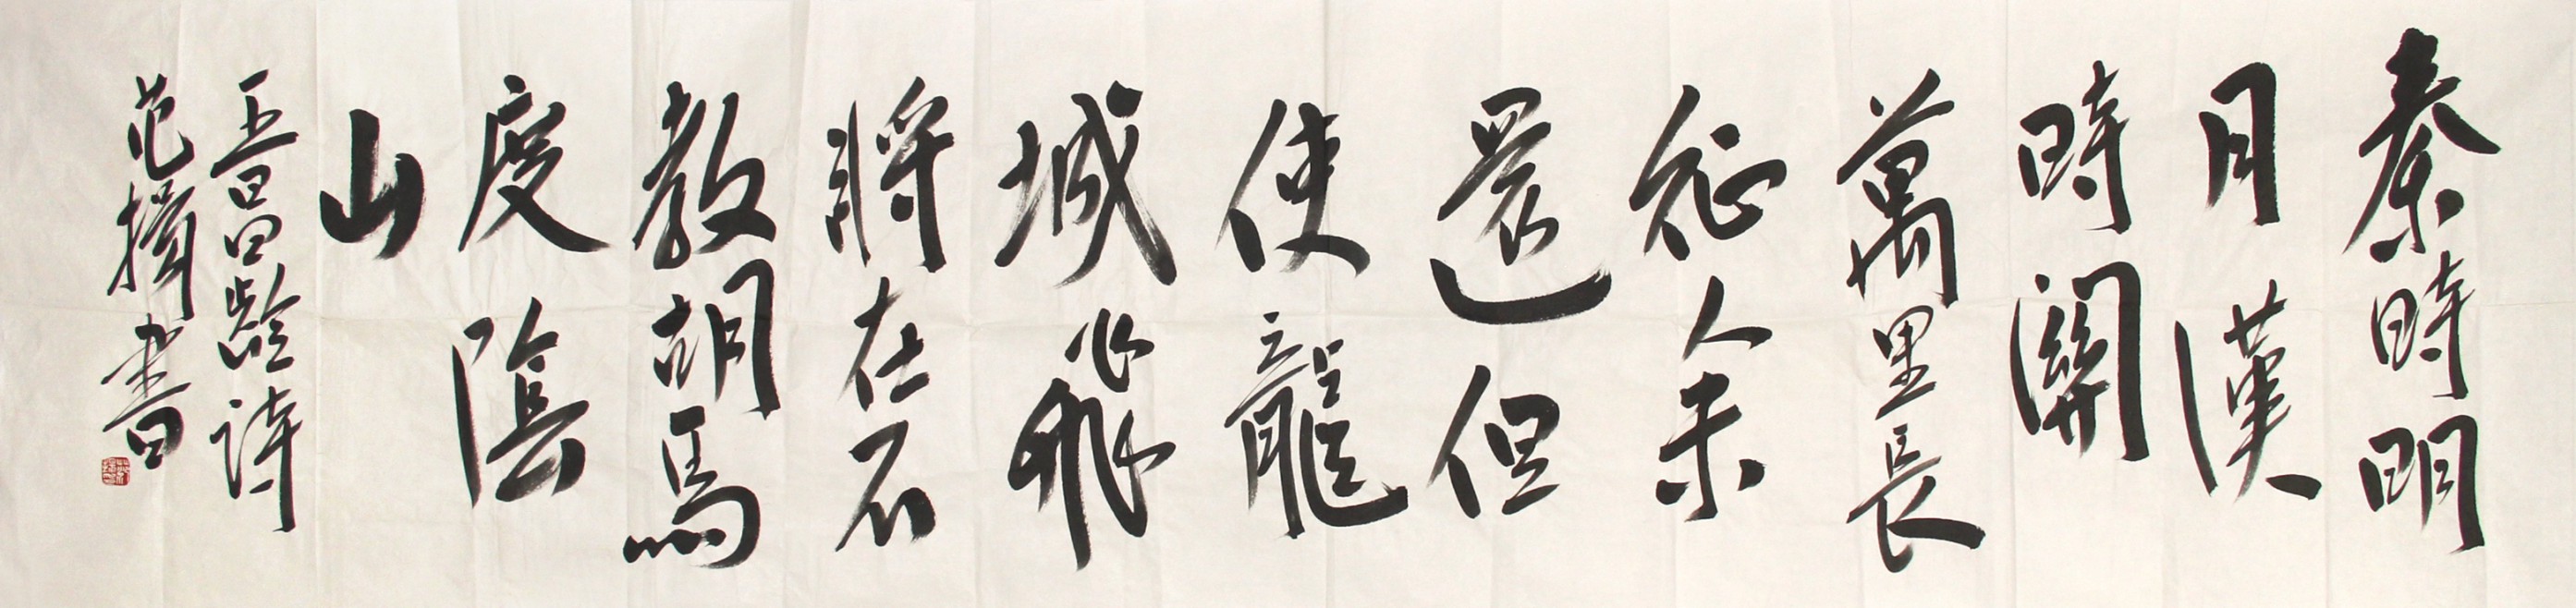 秦時明
月漢
時關
萬里長
征人未
還但
使龍
城飛
將在不
教胡馬
度陰
山
王昌齡詩
范書